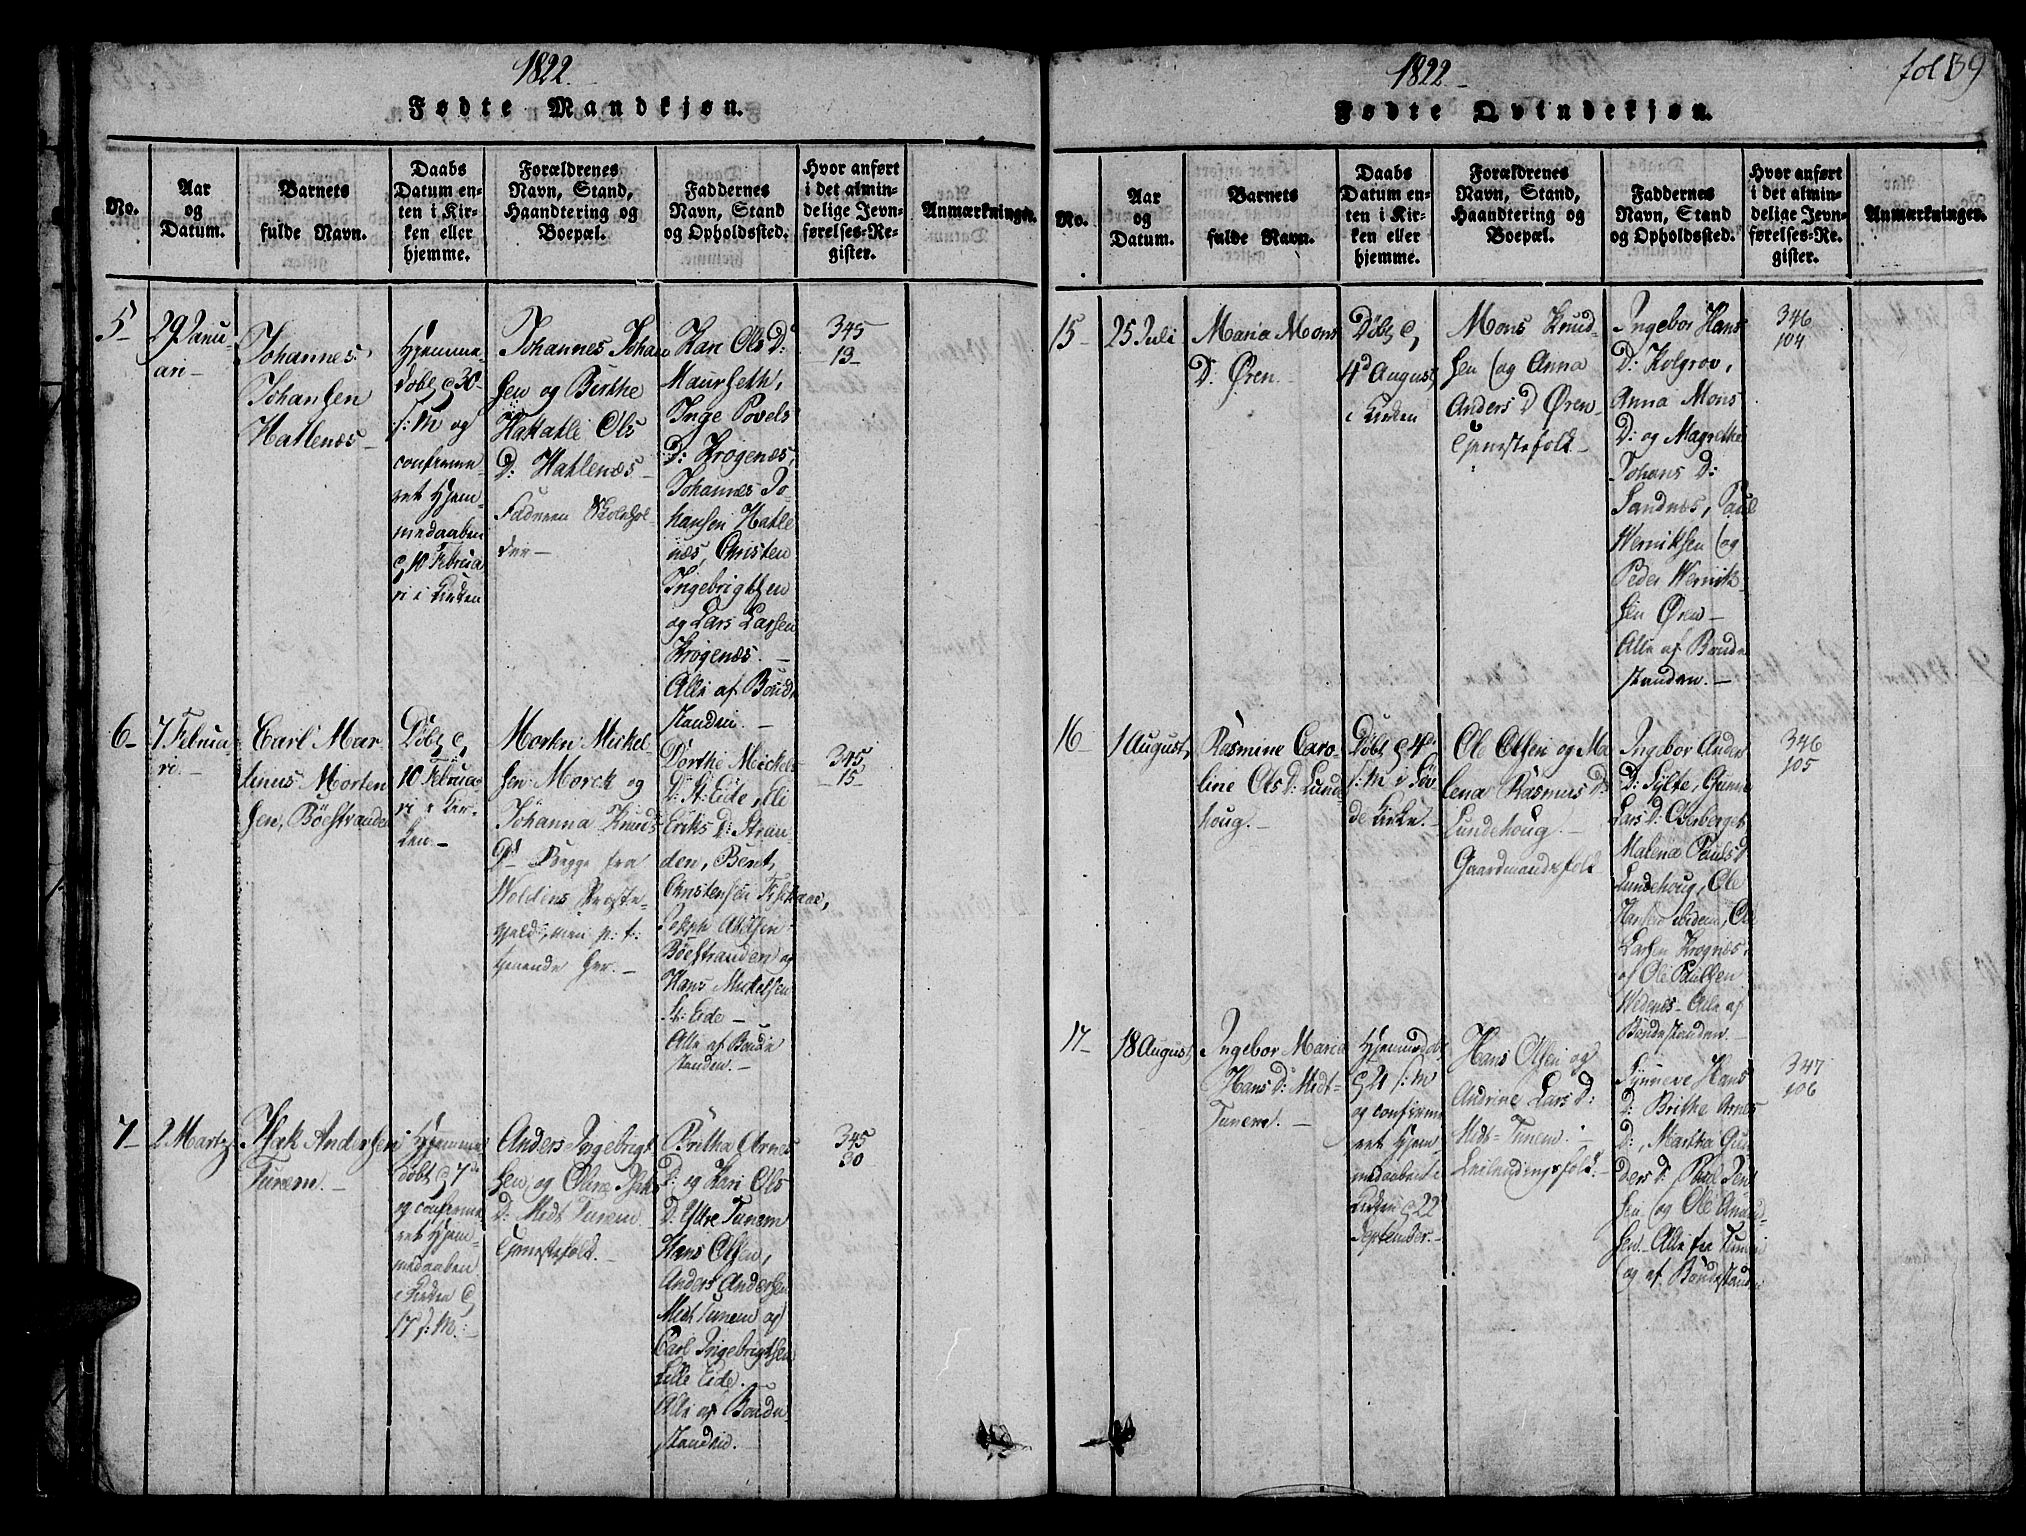 1822
Fødte Mandkjøn.
No.
Aar
og
Datum.
Barnets
fulde Navn.
Daabs
Datum en-
ten i Kir-
ken eller
hjemme.
Forældrenes
Navn, Stand,
Haandtering og
Boepæl.
Faddernes
Navn, Stand
og Opholdssted.
Hvor anført
i det almin-
delige Jevn-
førelses-Re-
gister.
Anmærkninger.
5
29 Janu
ari
Johannes
Johansen
Hatlenæs
Hjemme-
døbt d 30
s: M og
confirme-
ret Hjem-
medaaben
d 10 Februa
ri i Kirken
Johannes Johan
sen og Birthe
Ols
D: Hatlenæs
Faderen Skolehol-
der
Kari Ols D:
Maurseth,
Inge Povels
D: Krogenæs,
Johannes Jo-
hansen Hatle
næs, Christen
Ingebrigtsen
og Lars Larsen
Krogenæs.
Alle af Bonde
standen.
345
13
6
7 Februa
ri.
Carl Mar
tinus Morten
sen, Bøestranden
Døbt d
10 Februa
ri i Kir-
ken
Morten Mickel
sen Morck og
Johanna Knuds
D: Begge fra
Woldens Præste-
gjeld, men p: t:
tjenende her.
Dorthe Mickels
D: St: Eide, Eli
Eriks D: Stran
den, Bent
Christensen
Bøestranden og
Hans Mickelsen
St: Eide
Alle af Bonde
standen.
345
15
7
2 Martz
Isak Andersen
Tunem.
Hjemme
døbt d 7de
og confirme
ret Hjem-
medaaben
i Kirken d
17 s: M:
Anders Ingebrigt
sen, og Oline Isaks
D: Midt Tunem
Tjenestefolk.
Britha Arnes
D: og Kari Ols
D: Ytre Tunem
Hans Olsen,
Anders Andersen
Midt Tunem og
Carl Ingebrigtsen
Lille Eide.
Alle af Bonde
standen.
345
30
1822
fol 139
Fødte Qvindekjøn.
No.
Aar
og
Datum.
Barnets
fulde Navn.
Daabs
Datum en-
ten i Kir-
ken eller
hjemme.
Forældrenes
Navn, Stand,
Haandtering og
Boepæl.
Faddernes
Navn, Stand
og Opholdssted.
Hvor anført
i det almin-
delige Jevn-
førelses-Re-
gister.
Anmærkninger.
15
25 Juli
Maria Mons
D: Øren
Døbt d
4de August
i Kirken
Mons Knud-
sen og Anna
Anders D Øren
Tjenestefolk
Ingebor Hans
D: Kolgrov,
Anna Mons
D: og Magrethe
Johans D:
Sandnes, Paul
Werniksen og
Peder Wernik-
sen Øren
Alle af Bonde
standen.
346
104
16
1 August
Rasmine Caro
line Ols D: Lunde
houg.
Døbt d 4de
s: M i
de Kirke.
Ole Olsen og Ma
lena Rasmus D:
Lundehoug.
Gaardmandsfolk
Ingebor Anders
D: Sylte, Gunne
Lars D: Overberget
Malena Pauls D
Lundehoug, Ole
Hansen ibidem, Ole
Larsen Krognes
og Ole Paulsen
Wedenes - Alle af
Bondestanden.
346
105
17
18 August
Ingebor Maria
Hans D: Midt-
Tunem.
Hjemmedøbt
d 21 s: M
og confirme
ret Hjem
medaaben i
Kirken d 22
September.
Hans Olsen og
Andrine Lars D:
Midt-Tunem.
Leilendingsfolk.
Synneve Hans
D: Brithe Arnes
D:, Martha Gun
ders D: Paul Jen
sen og Ole Anders-
sen - Alle fra Tunem
og af Bondestanden
347
106